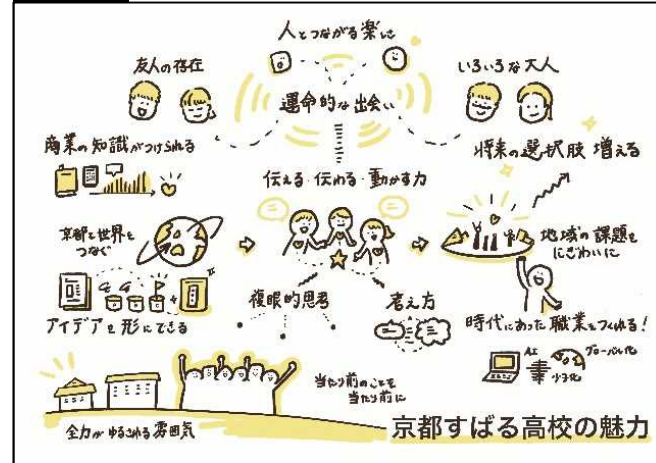 人とつながる楽しさ
友人の存在
いろいろな大人
運命的な出会い
商業の知識がつけられる
将来の選択肢 増える
伝える・伝わる・動かす力
京都と世界を
つなぐ
地域の課題を
にぎわいに
複眼的思考
考え方
アイデアを形にできる
時代にあった職業をつくれる!
AI
グローバル化
少子化
当たり前のことを
当たり前に
全力がゆるされる雰囲気
京都すばる高校の魅力